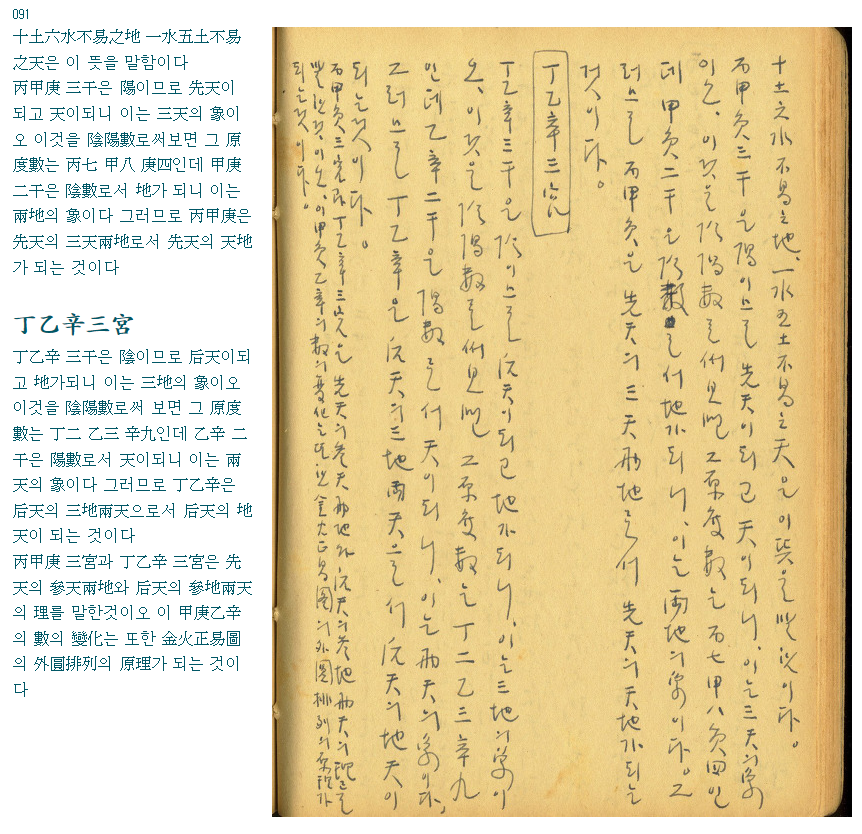 091
十土六水不易之地 一水五土不易
之天은 이 뜻을 말함이다
丙甲庚 三干은 陽이므로 先天이
되고 天이되니 이는 三天의 象이
오 이것을 陰陽數로써보면 그 原
度數는 丙七 甲八 庚四인데 甲庚
二干은 陰數로서 地가 되니 이는
兩地의 象이다 그러므로 丙甲庚은
先天의 三天兩地로서 先天의 天地
가 되는 것이다
丁乙辛三宮
丁乙辛 三干은 陰이므로 后天이되
고 地가되니 이는 三地의 象이오
이것을 陰陽數로써 보면 그 原度
數는 丁二 乙三 辛九인데 乙辛 二
干은 陽數로서 天이되니 이는 兩
天의 象이다 그러므로 丁乙辛은
后天의 三地兩天으로서 后天의 地
天이 되는 것이다
丙甲庚 三宮과 丁乙辛 三宮은 先
天의 參天兩地와 后天의 參地兩天
의 理를 말한것이오 이 甲庚乙辛
의 數의 變化는 또한 金火正易圖
의 外圓排列의 原理가 되는 것이
다
十土六水不易之地、一水五土不易之天은 이 뜻을 말함이다。
丙甲庚三干은 陽이므로 先天이되고 天이되니、이는 三天의象
이오、이것을 陰陽數로써보면 그原度數는 丙七甲八庚四인
데 甲庚二干은 陰數로서 地가되니、이는 兩地의象이다。그
러므로 丙甲庚은 先天의 三天兩地로서 先天의 天地가되는
것이다。
丁乙辛三宮
丁乙辛三干은 陰이므로 后天이되고 地가되니、이는 三地의象이
오、이것을 陰陽數로써보면 그原度數는 丁二乙三辛九
인데 乙辛二干은 陽數로서 天이되니、이는 兩天의象이다、
그러므로 丁乙辛은 后天의三地兩天으로서 后天의地天이
되는것이다。
丙甲庚三宮과 丁乙辛三宮은 先天의參天兩地와 后天의參地兩天의理를
말한것이오、이甲庚乙辛의數의變化는또한 金火正易圖의外圓排列의原理가
되는것이다。